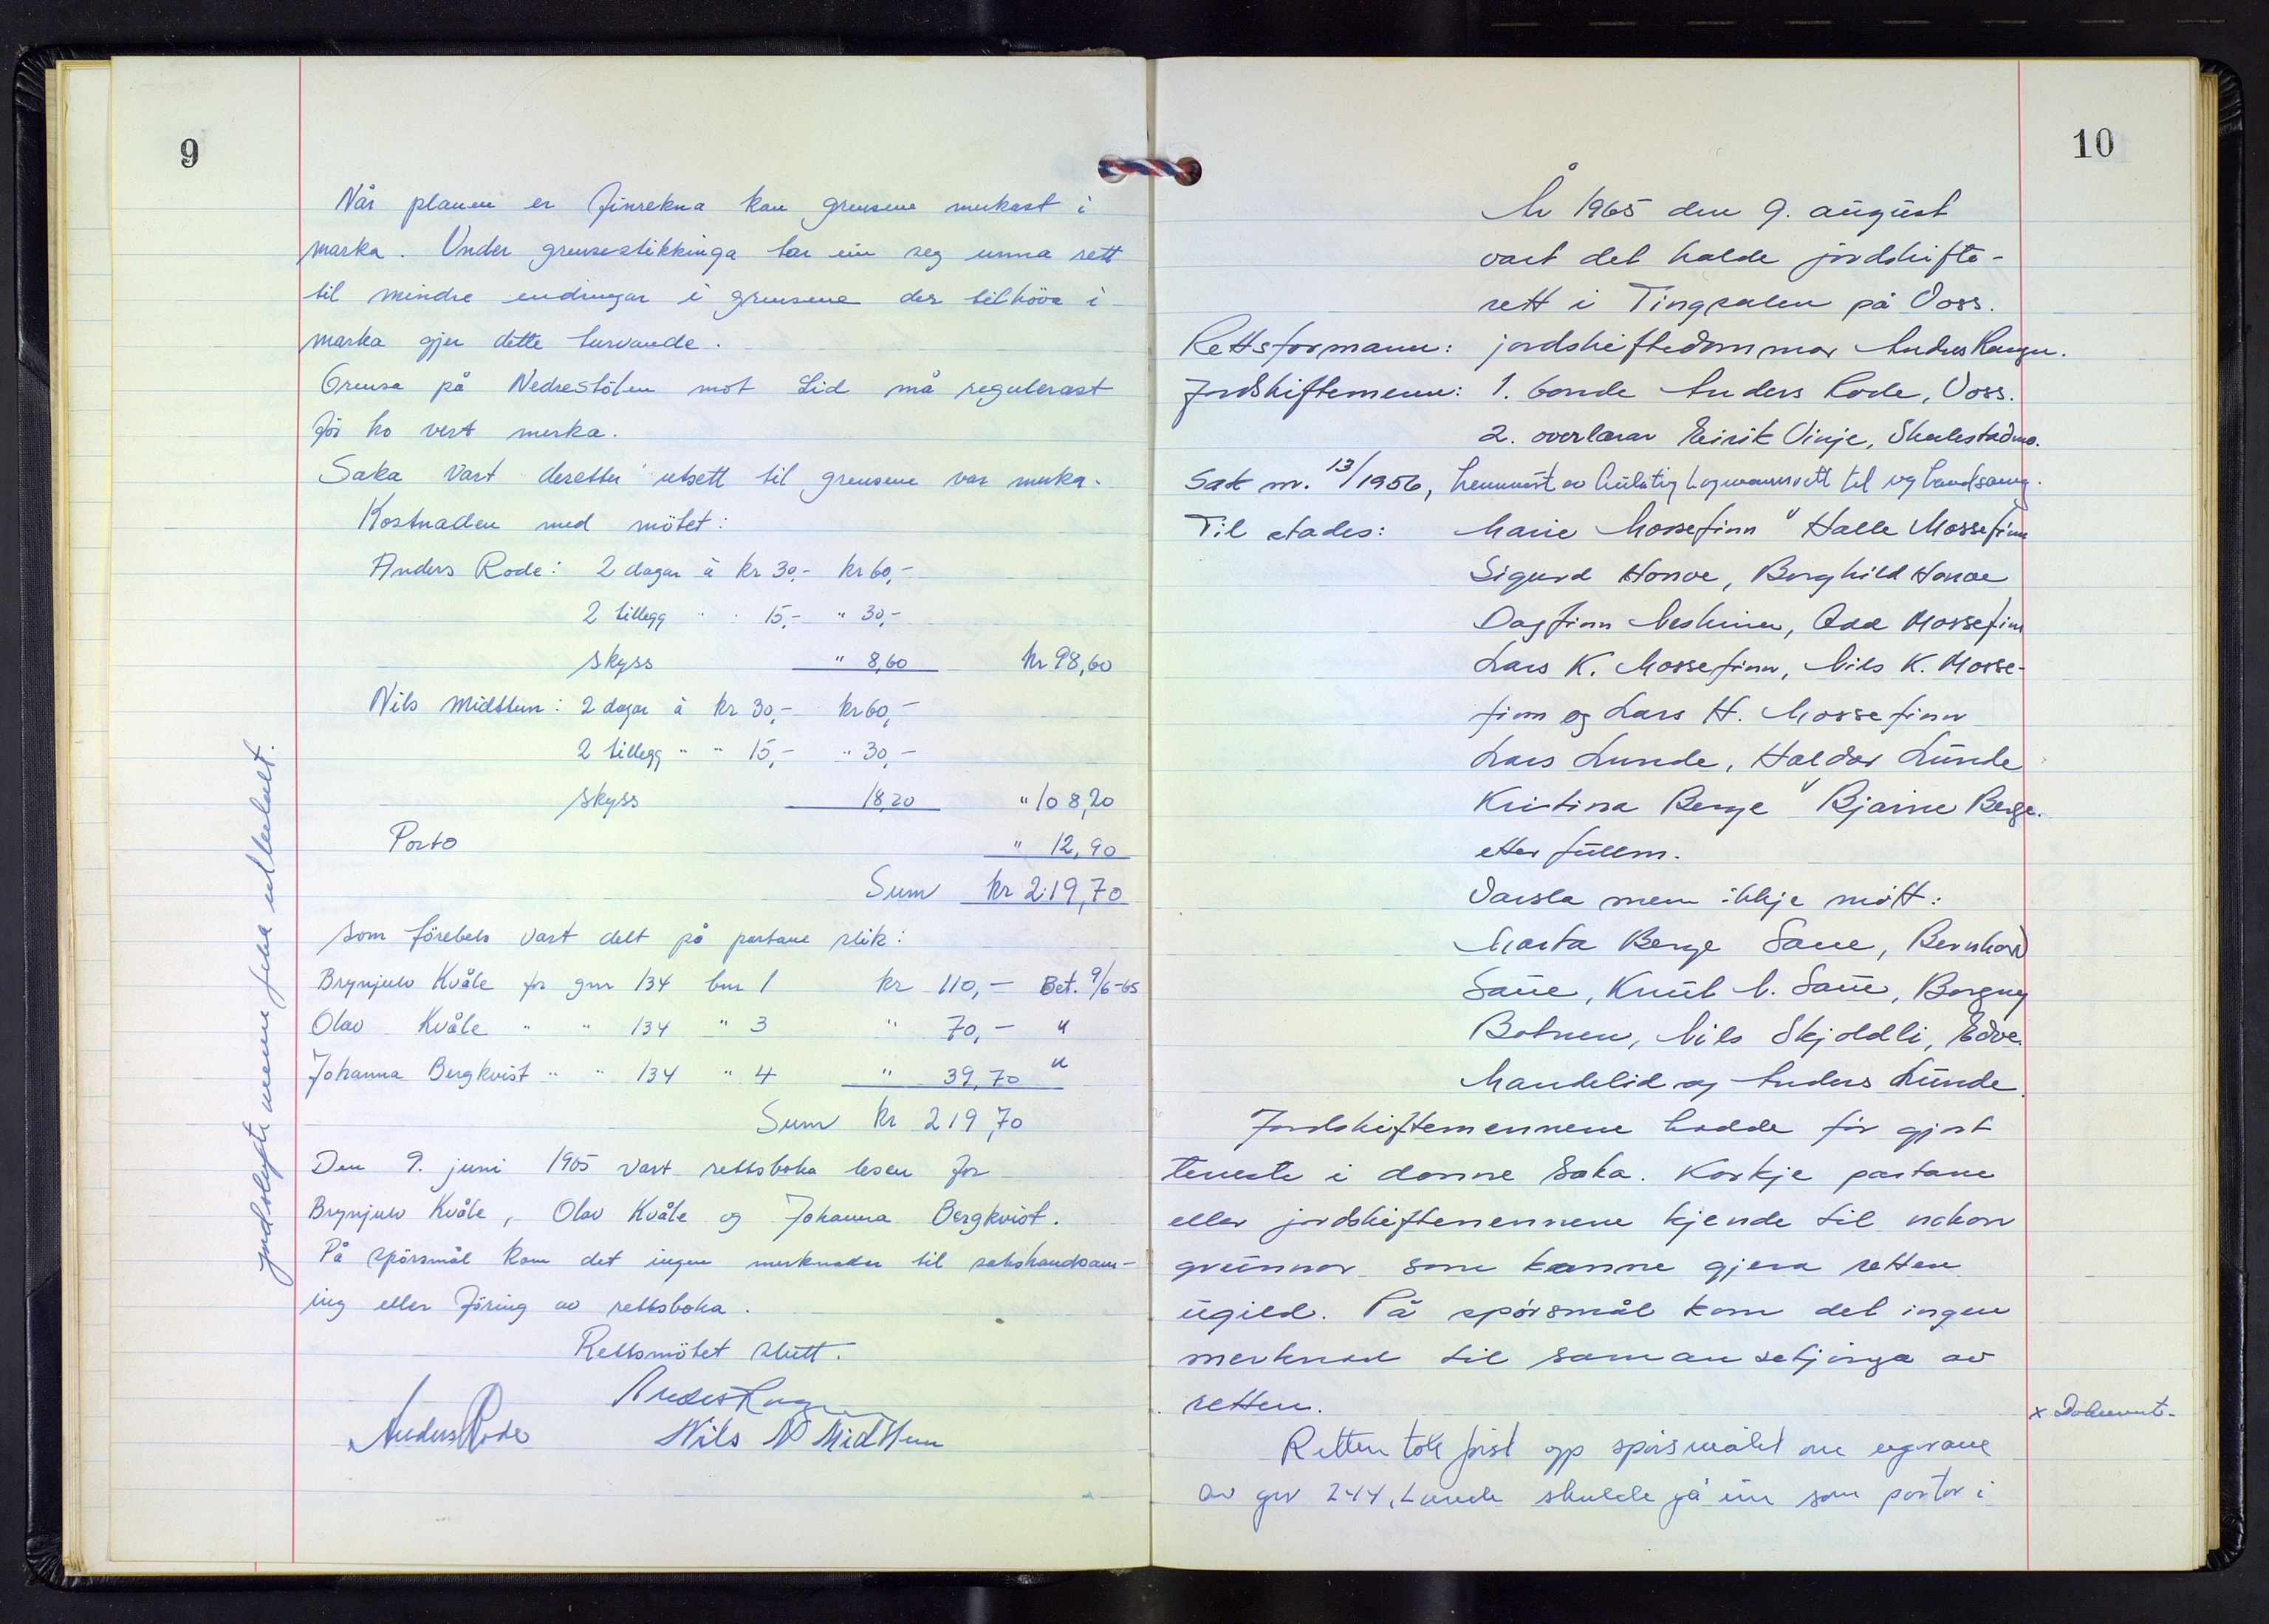 9
Når planen er finrekna kan grensene merkast i
marka. Under grensestikkinga tar ein seg unna rett
til mindre endringar i grensene der tilhøva i
marka gjer dette turvande.
Grensa på Nedrestölen mot Lid må regulerast
för ho vert merka.
Saka vart deretter utsett til grensene var merka.
Kostnaden med mötet:
Anders Rode: 2 dagar à kr 30,- kr 60,-
2 tillegg " " 15,- " 30,-
skyss " 8,60 kr 98,60
Nils Midttun: 2 dagar à kr 30,- kr 60,-
2 tillegg " " 15,- " 30,-
skyss 18,20 " 108,20
Porto " 12,90
Sum kr 219,70
som förebels vart delt på partane slik:
Brynjulv Kvåle for gnr 134 bnr 1 kr 110,- Bet. 9/6-65
Olav Kvåle " " 134 " 3 " 70,- "
Johanna Bergkvist " " 134 " 4 " 39,70 "
Sum kr 219,70
Den 9. juni 1965 vart rettsboka lesen for
Brynjulv Kvåle, Olav Kvåle og Johanna Bergkvist.
På spörsmål kom det ingen merknader til sakshandsam-
ing eller föring av rettsboka.
Rettsmötet slutt.
Anders
Anders Rode Nils N Midttun
utbetalt.
10
År 1965 den 9. august
vart det halde jordskifte-
rett i Tingsalen på Voss.
Rettsformann: jordskiftedommar Anders
Jordskiftemenn: 1. bonde Anders Rode, Voss.
2. overlærar Eirik Vinje, Skulestadmo.
Sak nr. 13/1956, Lagmannsrett til ny handsaming.
Til stades: Marie Mossefinn v/ Halle Mossefinn
Sigurd Honve, Borghild Honve
Dagfinn Neskinen, Odd Mossefinn
Lars K. Mossefinn, Nils K. Mosse-
finn og Lars H. Mossefinn
Lars Lunde, Haldor Lunde
Kristina Berge v/ Bjarne Berge.
etter fullm.
Varsla men ikkje mött:
Marta Berge Saue, Bernhard
Saue, Knut N. Saue, Borgny
Botnen, Nils Skjoldli, Edv.
Mandelid og Anders Lunde.
Jordskiftemennene hadde för gjort
teneste i denne saka. Korkje partane
eller jordskiftemennene kjende til nokon
grunnar som kunne gjera retten
ugild. På spörsmål kom det ingen
merknad til samansetjinga av
retten.
x Dokument.
Retten tok först opp spörsmålet om eigarane
av gnr 244, Lunde skulde gå inn som partar i